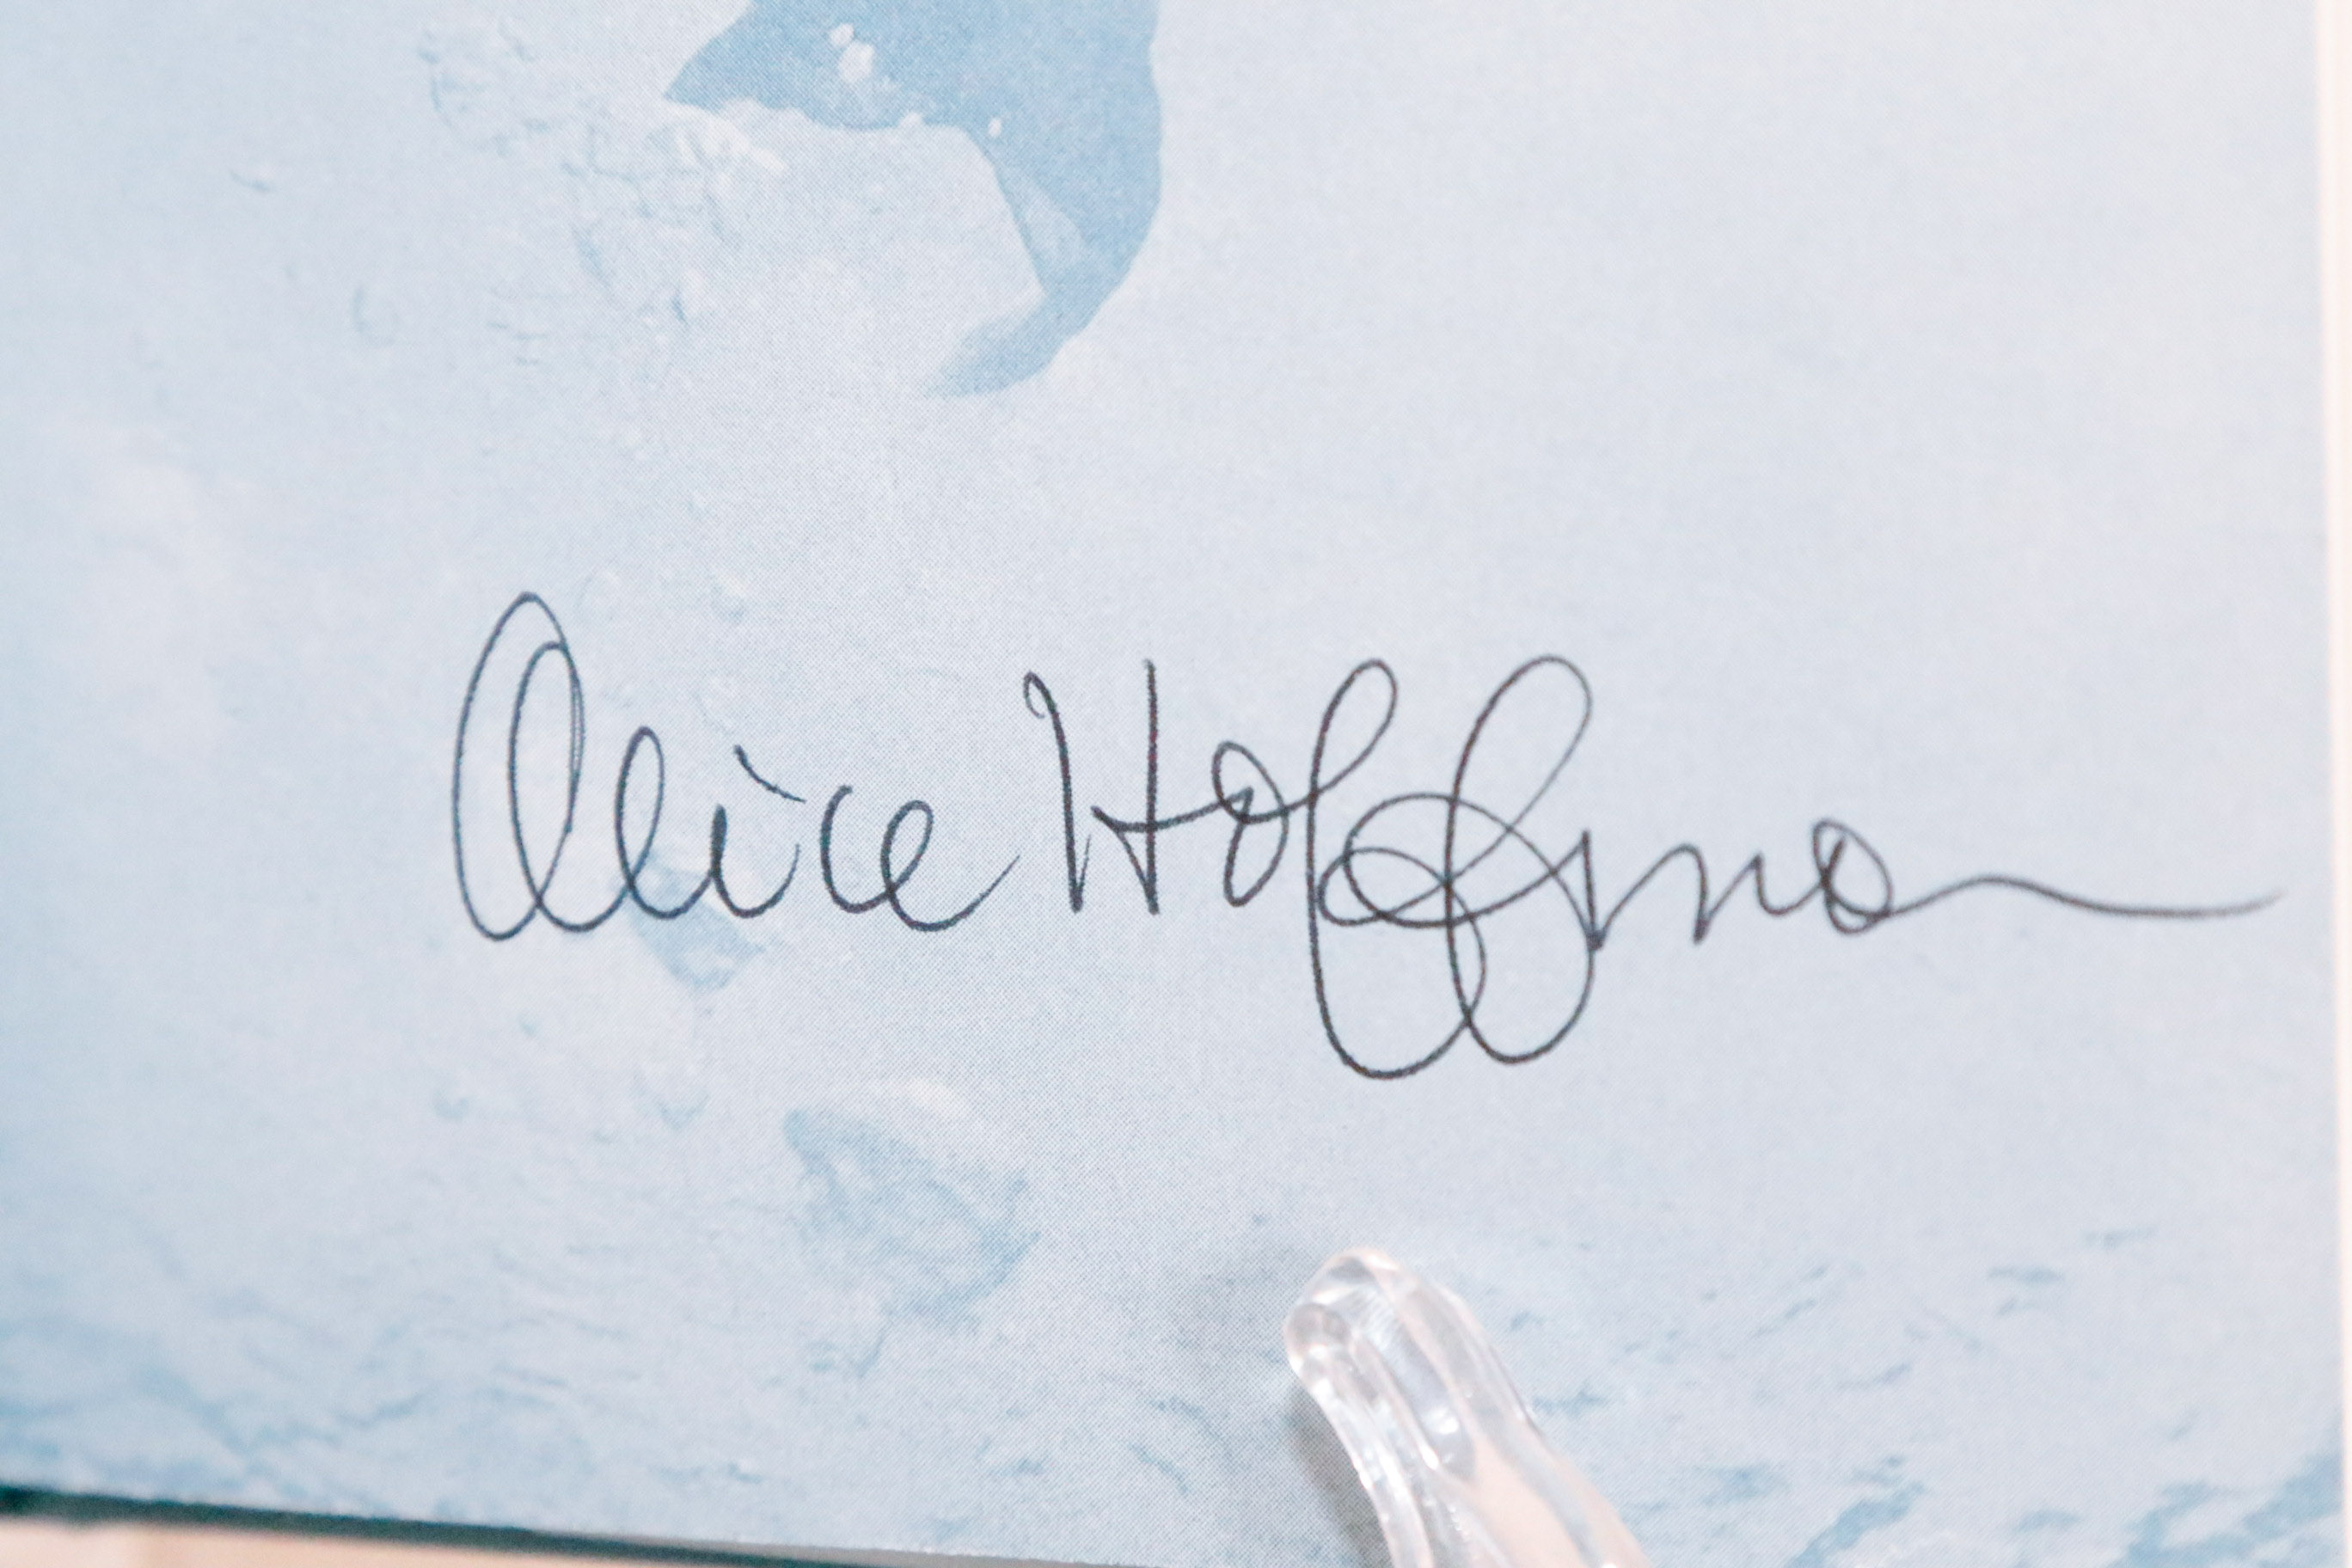 Alice Hoffman